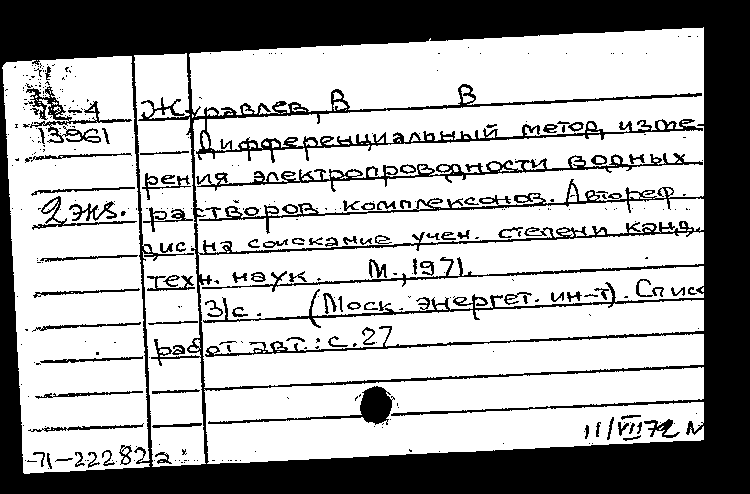 72-4 Журавлев, В В
13961 Дифференциальный метод изме-
рения электропроводности водных
2 экз. растворов комплексонов. Автореф.
дис. на соискание учен. степени канд.
техн. наук. М., 1971.
31с. (Моск. энергет. ин-т). Списк
работ авт.: с.27
11/VII 72 N
-71-22282а